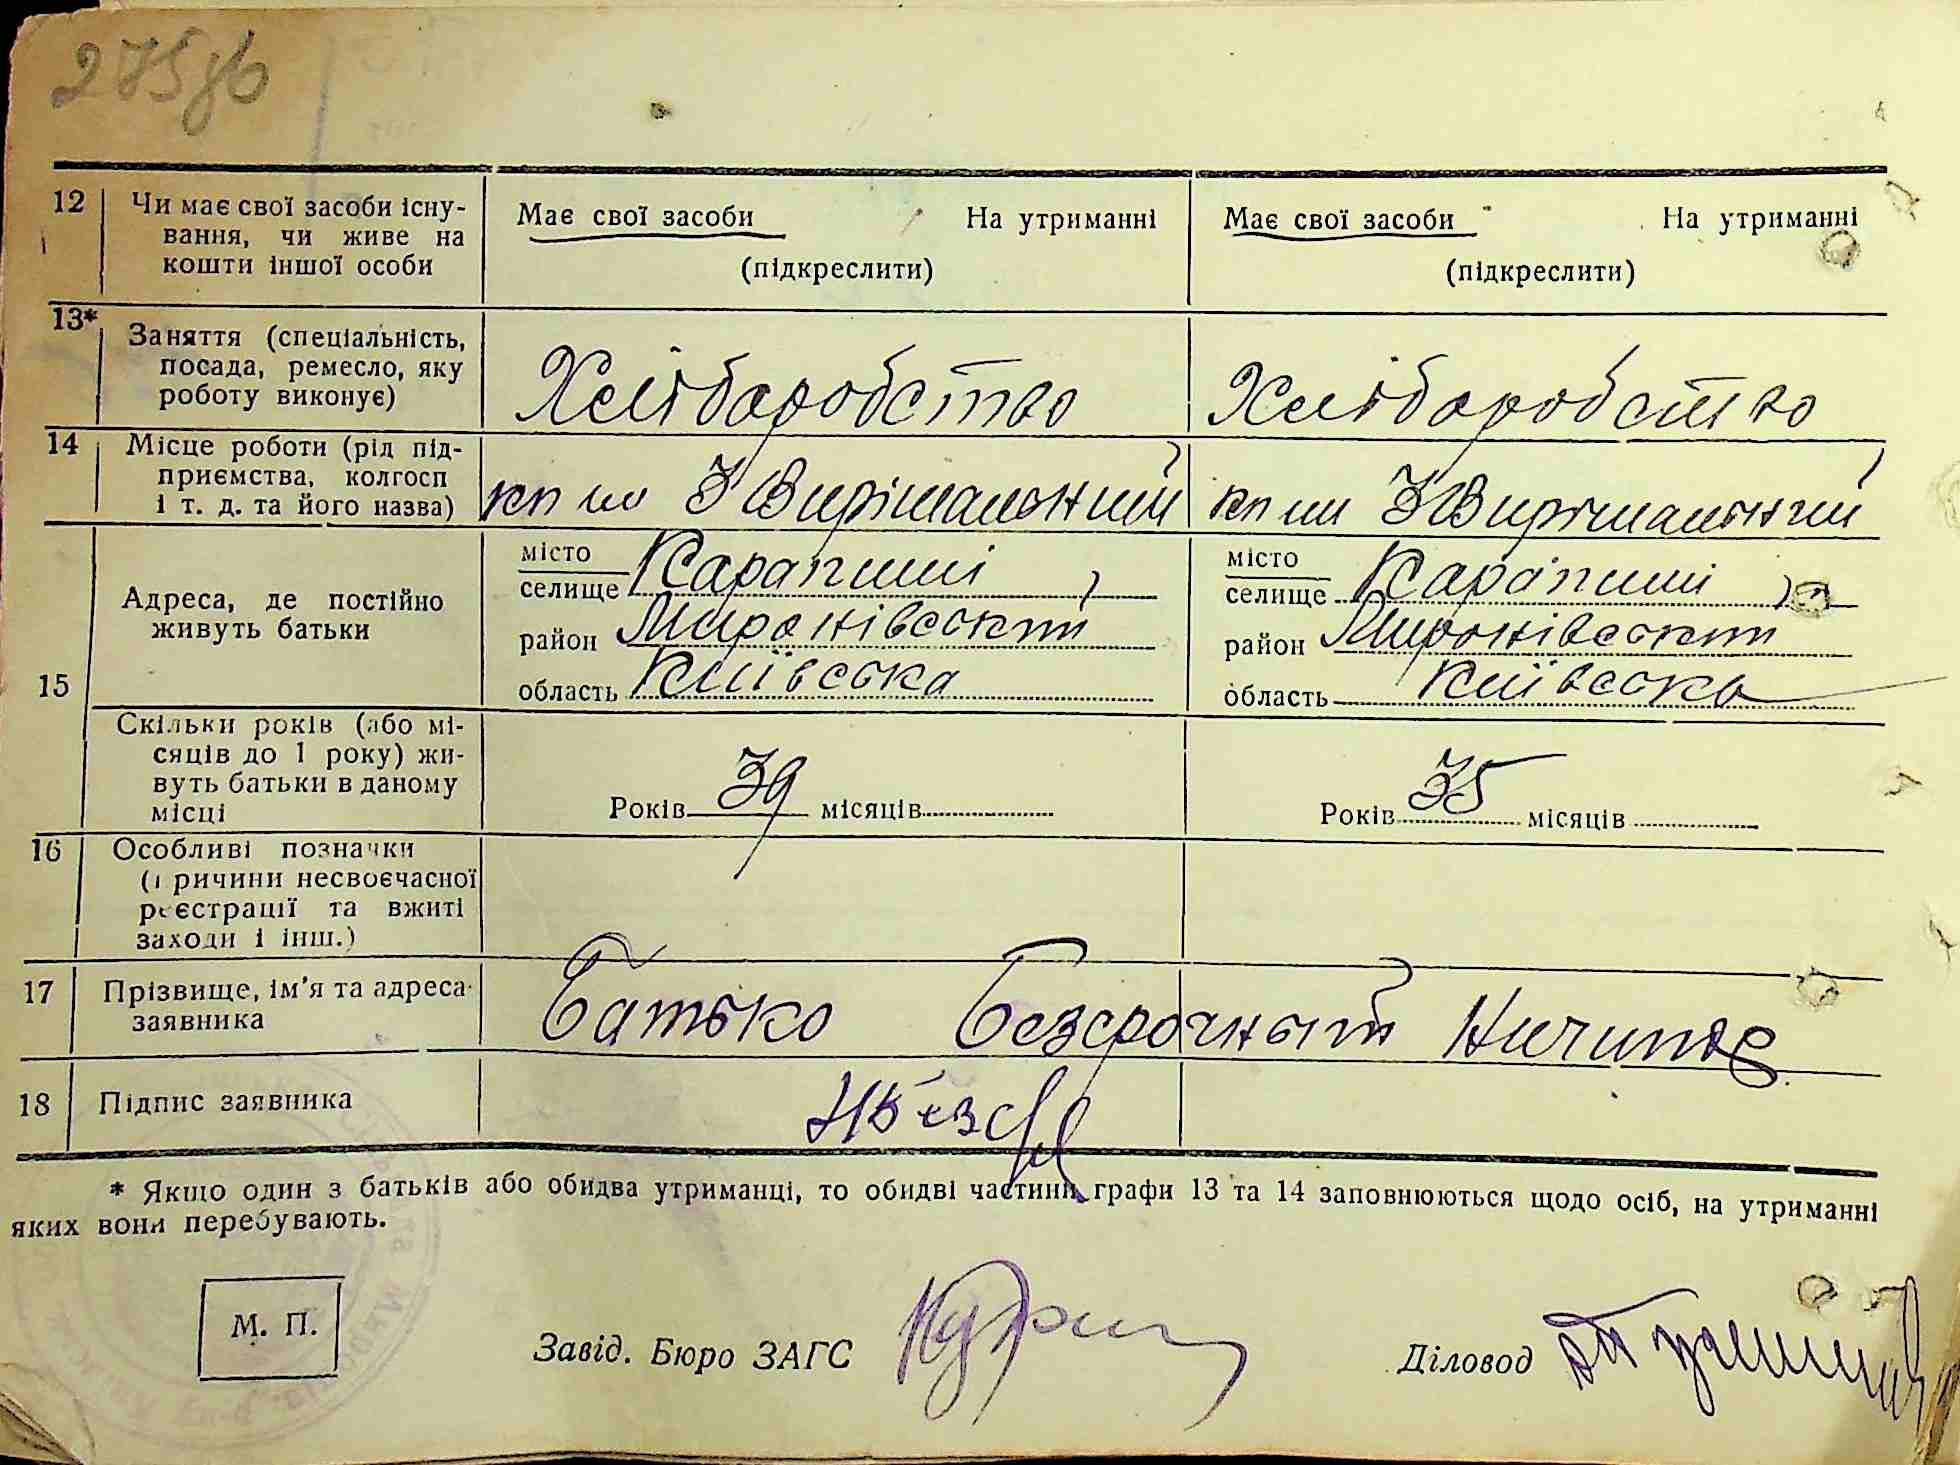 275зв
12 Чи має свої засоби існу-
вання, чи живе на
кошти іншої особи
Має свої засоби На утриманні
(підкреслити)
Має свої засоби На утриманні
(підкреслити)
13* Заняття (спеціальність,
посада, ремесло, яку
роботу виконує)
Хліборобство
Хліборобство
14 Місце роботи (рід під-
приємства, колгосп
і т. д. та його назва)
кп ім 3 Вирішальний
кп ім 3 Вирішальний
15 Адреса, де постійно
живуть батьки
місто
селище Карапиші,
район Миронівський
область Київська
місто
селище Карапиші,
район Миронівський
область Київська
Скільки років (або мі-
сяців до 1 року) жи-
вуть батьки в даному
місці
Років 39 місяців
Років 35 місяців
16 Особливі позначки
(причини несвоєчасної
реєстрації та вжиті
заходи і інш.)
17 Прізвище, ім'я та адреса
заявника
Батько Безсрочный Ничипор
18 Підпис заявника
* Якщо один з батьків або обидва утриманці, то обидві частини графи 13 та 14 заповнюються щодо осіб, на утриманні
яких вони перебувають.
М. П.
Завід. Бюро ЗАГС
Діловод